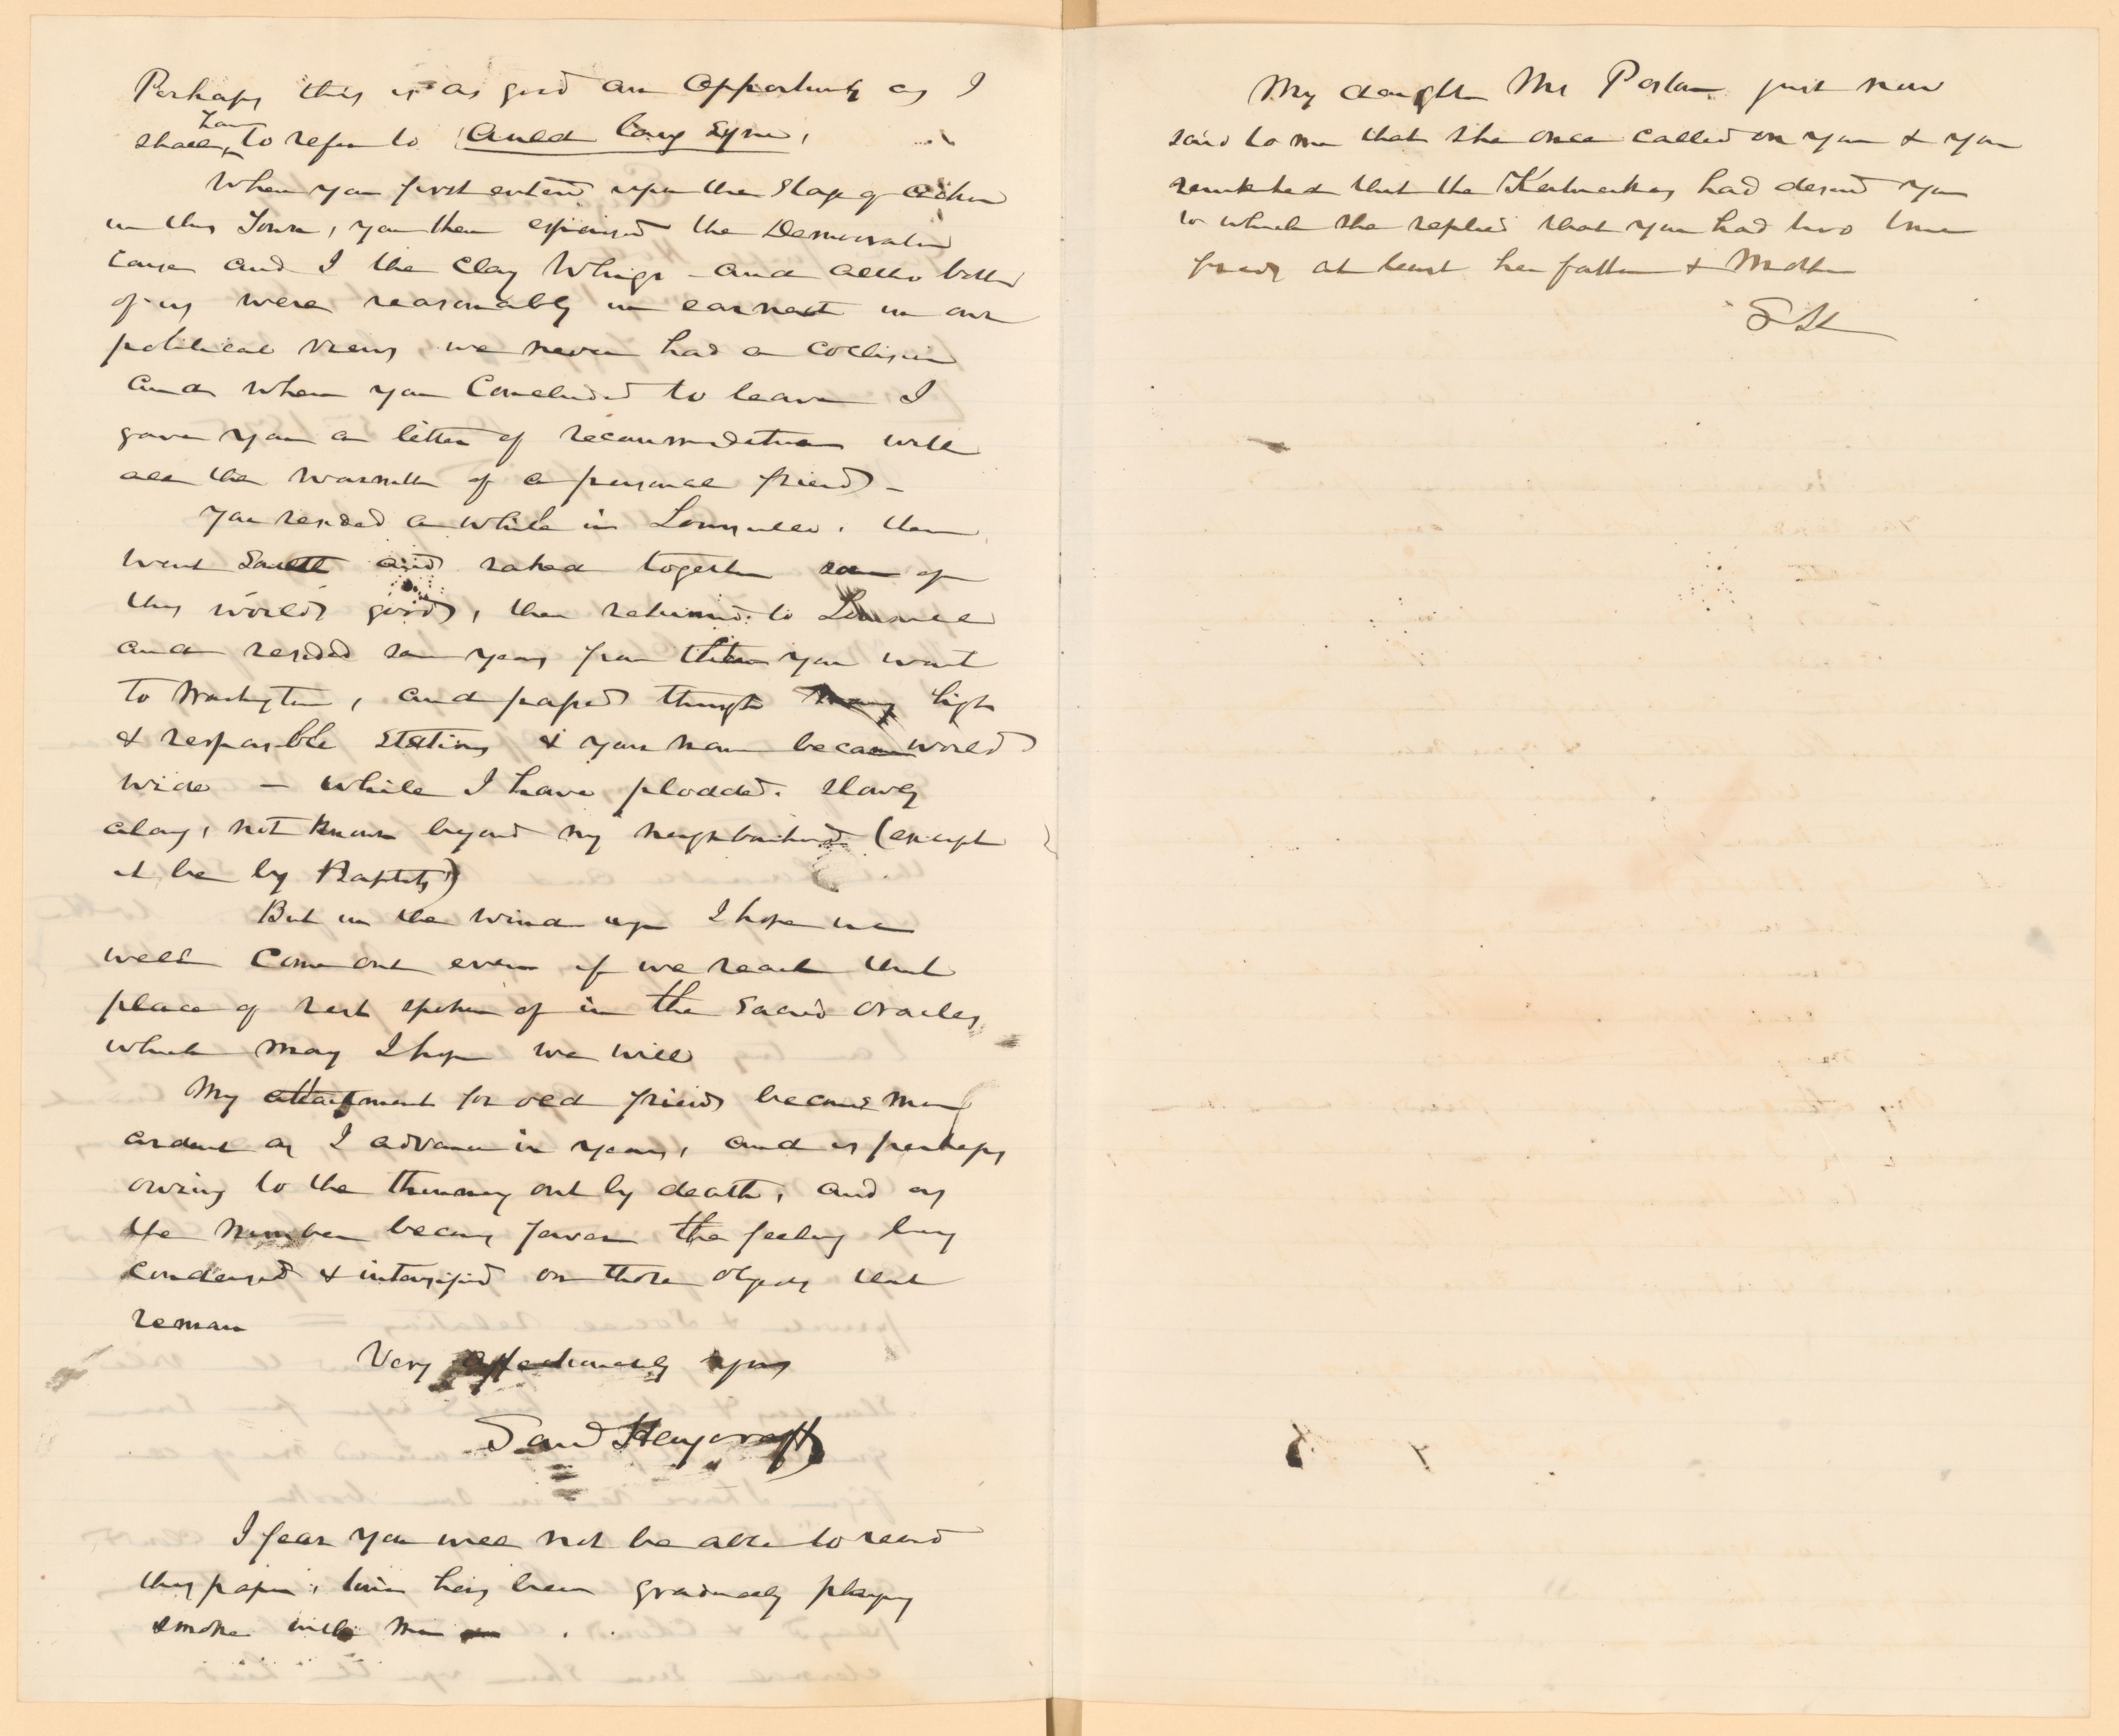 Perhaps this is as good an opportunity as I
shall have to refer to Auld Lang Syne,
When you first enterd upon the Stage of action
in this Town, you then espoused the Democratic
cause and I the Clay Whigs and altho both
of us were reasonably in earnest in our
political views, we never had a collision
and when you concluded to leave I
gave you a letter of recommendation with
all the warmth of a personal friend -
You resided a while in Louisville, then
went South and raked together some of
this worlds goods, then returned to Louisville
and resided some years from then you went
to Washington, and passed through many high
& responsible Stations & your name became world
wide - while I have plodded slowly
along, not known beyond my neighborhood (except
it be by Baptists)
But in the wind up I hope we
will come out even if we reach that
place of rest spoken of in the Sacred Oracles
which may I hope we will
My attachment for old friends become more
ardent as I advance in years, and is perhaps
owing to the thinning out by death, and as
the number becomes fewer the feeling being
condensed & intensified on those objects that
remain
Very affectionately yours
Saml Haycraft
I fear you will not be able to read
this paper, time has been gradually playing
smoke with me
My daughter Mrs just now
said to me that she once called on you & you
remarked that the Kentuckians had deserted you
to which she replied that you had two true
friends at least her father & Mother
S H